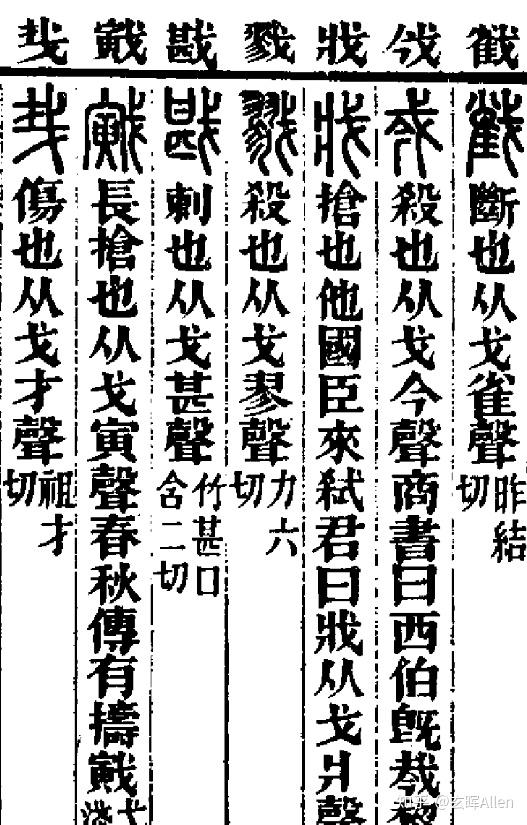 㦢 斷也从戈雀聲昨結切
𢦟 殺也从戈今聲商書曰西伯旣𢦟黎
戕 搶也他國臣來弑君曰戕从戈爿聲
戮 殺也从戈翏聲力六切
戡 刺也从戈甚聲竹甚口含二切
戭 長搶也从戈寅聲春秋傳有擣戭
𢦏 傷也从戈才聲祖才切
知乎 @玄晖Allen